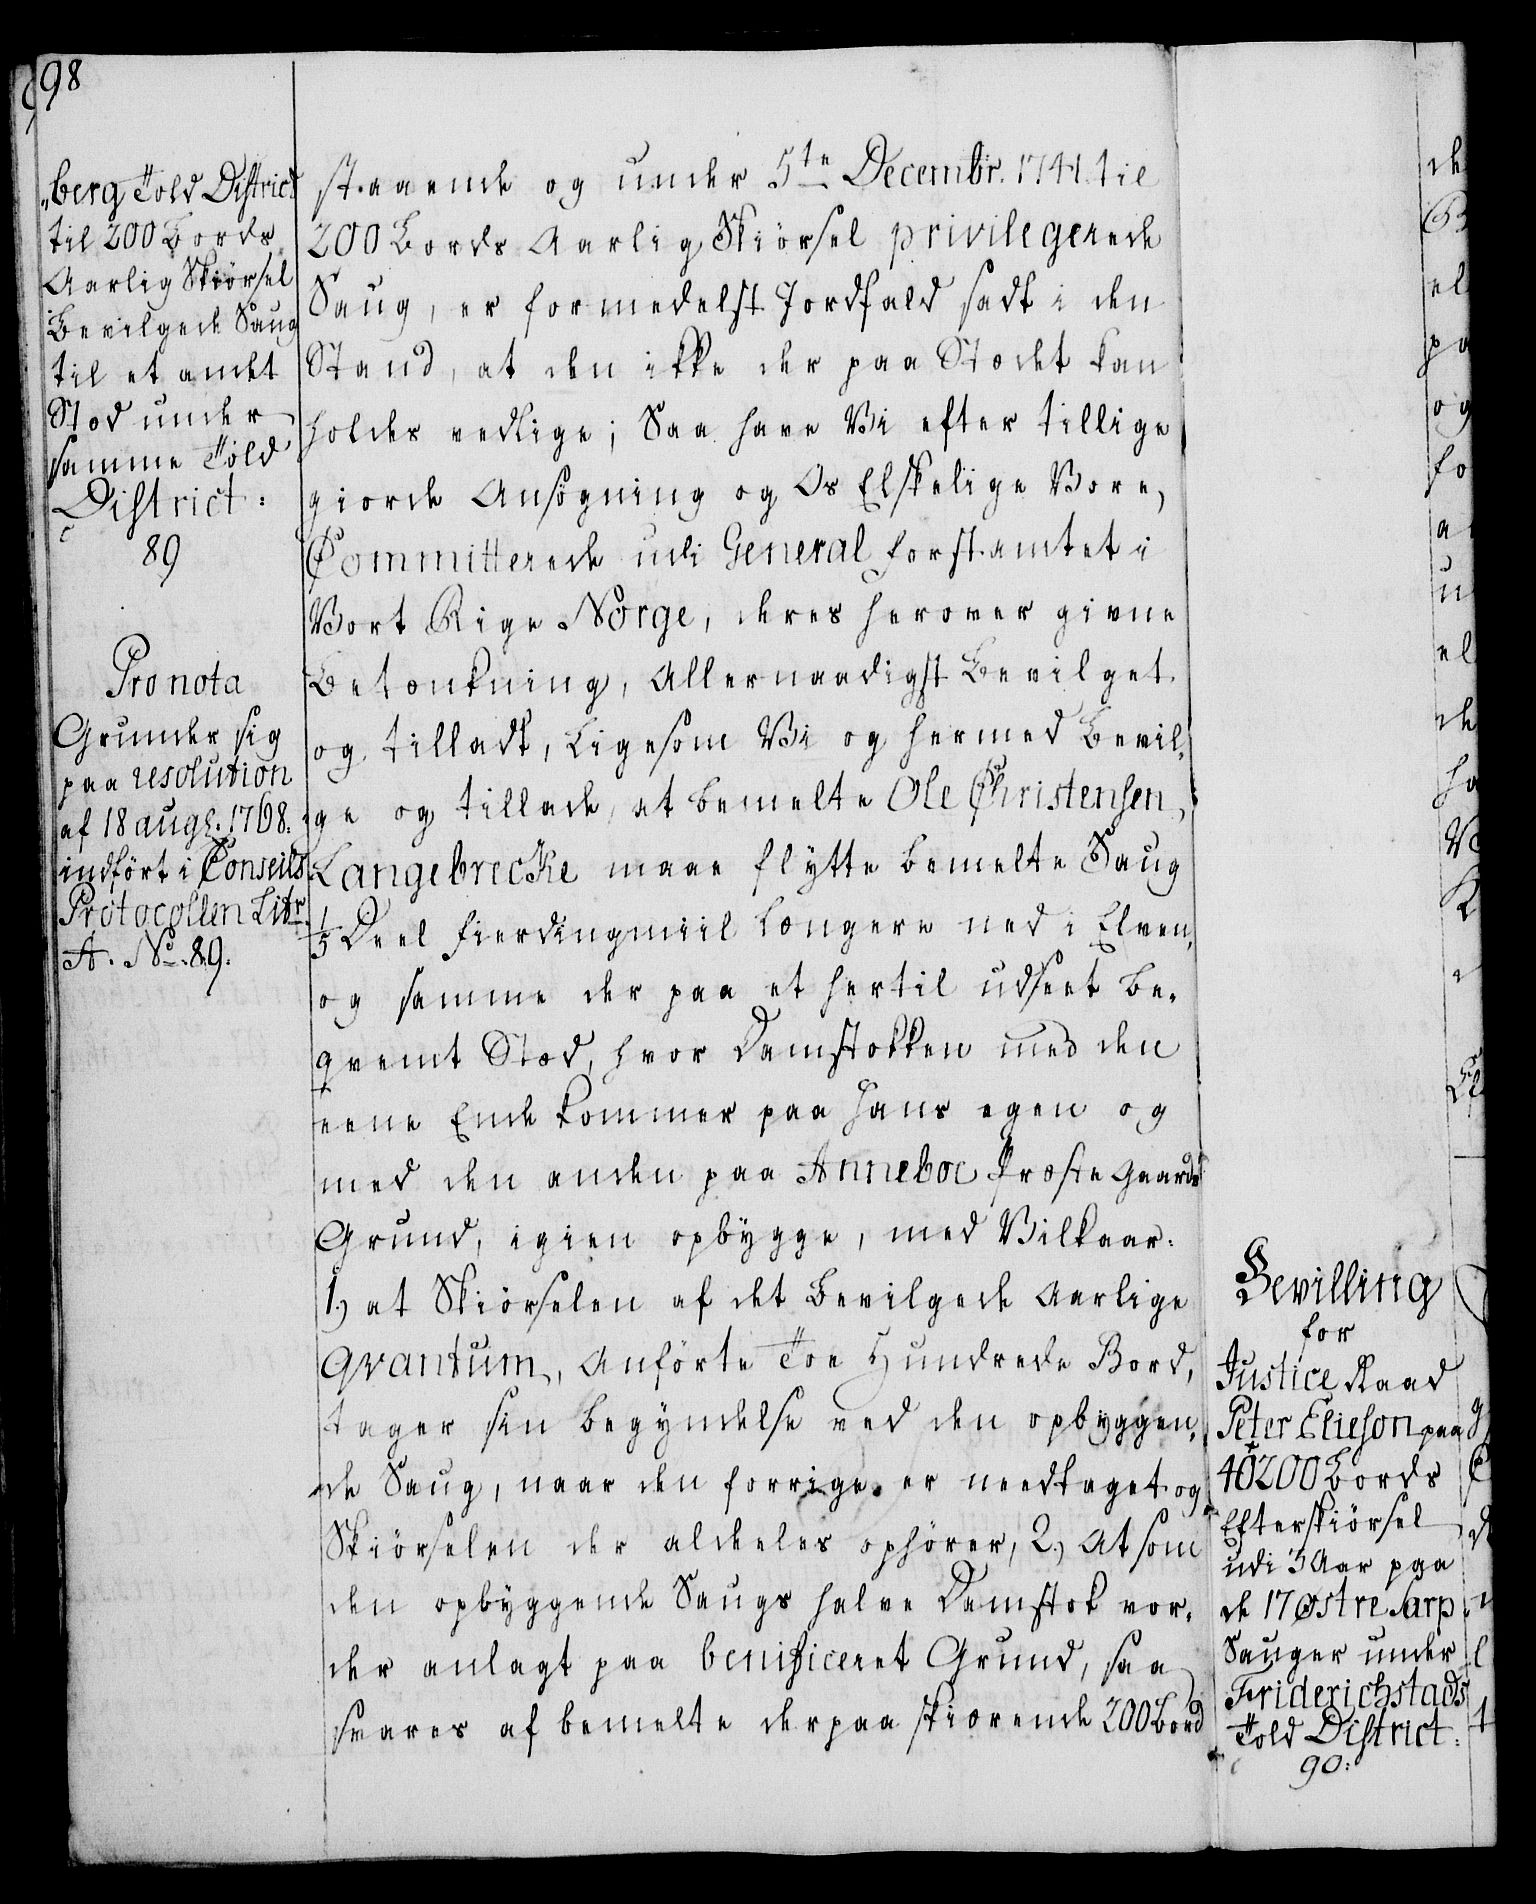 98
„berg Told District
til 200 Bords
Aarlig Skiörsel
Bevilgede Saug
til et andet
Stæd under
samme Told
District:
89
Pro nota
Grunder sig
paa resolution
af 18 aug. 1768.
indfört i Conseils
Protocollen Litr.
A. No. 89.
staaende og under 5te Decembr. 1741. til
200 Bords Aarlig Skiörsel privilegerede
Saug, er formedelst Jordfald sadt i den
Stand, at den ikke der paa Stædet kan
holdes vedlige; Saa have Vi efter tillige
giorde Ansögning og Os Elskelige Vore,
Committerede udi General forstamtet i
Vort Rige Norge, deres herover givne
Betænkning, Allernaadigst Bevilget
og tilladt, Ligesom Vi og hermed Bevil„
ge og tillade, at bemelte Ole Christensen
Langebrecke maae flÿtte bemelte Saug
1/5 Deel Fierdingmiil længere ned i Elven,
og samme der paa et hertil udseet be„
qvemt Stæd, hvor Damstokken med den
eene Ende kommer paa hans egen og
med den anden paa Anneboe Præste Gaards
Grund, igien opbÿgge, med Vilkaar:
1.) at Skiörselen af det Bevilgede Aarlige
Qvantum, Anförte Toe Hundrede Bord,
tager sin begÿndelse ved den opbÿggen„
de Saug, naar den forrige er needtaget og
Skiörselen der aldeeles ophörer, 2.) At som
den opbÿggende Saugs halve Damstok vor„
der anlagt paa benificeret Grund, saa
svares af bemelte derpaa skiærende 200 Bord
Bevilling
for
Justice Raad
Peter Elieson paa
40200 Bords
Efterskiörsel
udi 3 Aar paa
de 17 Østre Sarp
Sauger under
Friderichstads
Told District:
90: